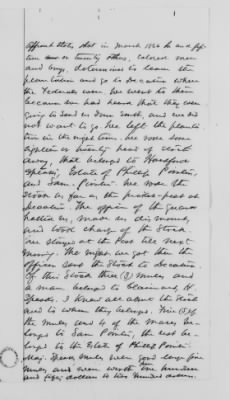 Affiant states, that in March 1864 he and fif-
teen or twenty others, colored men
and boys, determined to leave the
plantation and go to Decatur where
the Federals were. We went to them
because we had heard that they were
going to send us down South, and we did
not want to go. We left the planta-
tion in the night time. We rode some
eighteen or twenty head of stock
away, that belonged to
Speaks, Estate of Philip
and Sam. We rode the
stock as far as the pickets post at
Decatur. The officer of the guard
halted us, made us dismount,
and took charge of the stock.
We stayed at the Post till next
morning. The
officer sent the stock to Decatur
Of this stock three (3) mules and
a mare belonged to Claimant, H.
Speaks. I know all about the stock
and to whom they belonged. Five (5) of
the mules and 4 of the mares be-
longed to Sam, the rest be-
longed to the Estate of Philip
mules were good large fine
mules and were worth one hundred
and fifty dollars to two hundred dollars.